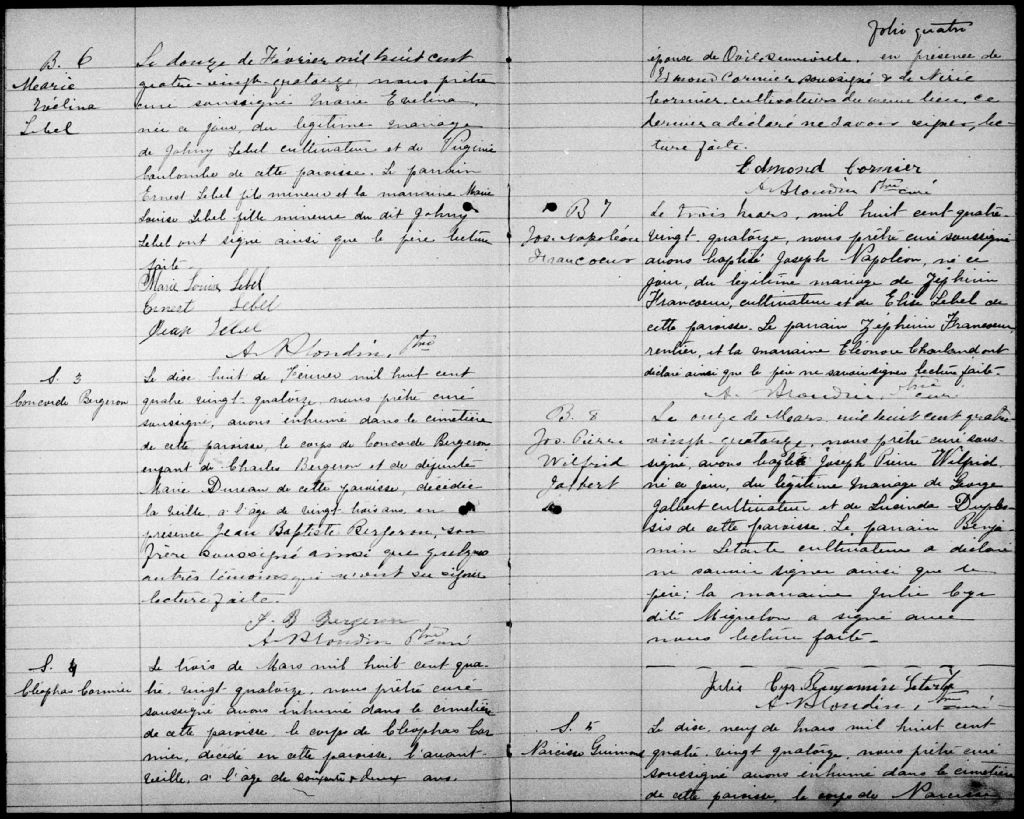 B. 6
Marie
Evélina
Lebel
Le douze de Février mil huit cent
quatre-vingt-quatorze, nous prêtre
curé soussigné Marie Evelina
née ce jour, du légitime mariage
de Johny Lebel cultivateur et de Virginie
Coulombe de cette paroisse. Le parrain
Ernest Lebel fils mineur et la marraine Marie
Louise Lebel fille mineure du dit Johny
Lebel ont signé ainsi que le père lecture
faite
Marie Louise Lebel
Ernest Lebel
Jean Lebel
A. Blondin, Ptre
S. 3
Concorde Bergeron
Le dix huit de Fevrier mil huit cent
quatre vingt-quatorze, nous prêtre curé
soussigné, avons inhumé dans le cimetière
de cette paroisse, le corps de Concorde Bergeron
enfant de Charles Bergeron et de défunte
Marie Dureau de cette paroisse, décédée
la veille, a l'age de vingt trois ans, en
présence Jean Baptiste Bergeron, son
frère soussigné ainsi que quelques
autres témoins qui n'ont su signer
lecture faite.
J. B Bergeron
A. Blondin Ptre curé
S. 4
Cléophas Cormier
Le trois de Mars mil huit cent qua-
tre-vingt-quatorze, nous prêtre curé
soussigné avons inhumé dans le cimetière
de cette paroisse le corps de Cléophas Cor
mier, décédé en cette paroisse, l'avant-
veille, a l'age de soixante & deux ans.
folio quatre
épouse de en présence de
Edmond Cormier soussigné & de
Cormier, cultivateurs du même lieu, ce
dernier a déclaré ne savoir signer, lec-
ture faite.
Edmond Cormier
A. Blondin Ptre curé
B 7
Jos. Napoléon
Francoeur
Le trois Mars, mil huit cent quatre-
vingt-quatorze, nous prêtre curé soussigné
avons baptisé Joseph Napoleon, né ce
jour, du légitime mariage de Zéphirin
Francoeur, cultivateur et de Elise Lebel de
cette paroisse. Le parrain Zéphirin Francoeur,
rentier, et la marraine Eléonore Charland ont
déclaré ainsi que le père ne savoir signer lecture faite.
A. Blondin, Ptre cur
B. 8
Jos. Pierre
Wilfrid
Jalbert
Le onze de Mars mil huit cent quatre-
vingt-quatorze, nous prêtre curé sous-
signé, avons baptisé Joseph Pierre Wilfrid
né ce jour, du légitime mariage de George
Jalbert cultivateur et de Lucinda Duples-
sis de cette paroisse. Le parrain Benja
min Letarte cultivateur a déclaré
ne savoir signer ainsi que le
père; la marraine Julie Cyr
dite Miquelon a signé avec
nous lecture faite.
Julie Cyr. Benjamin Letarte
A. Blondin, Ptre curé
S. 5
Narcisse Guimond
Le dix, neuf de Mars mil huit cent
quatre-vingt quatorze, nous prêtre curé
soussigné avons inhumé dans le cimetière
de cette paroisse, le corps de Narcisse